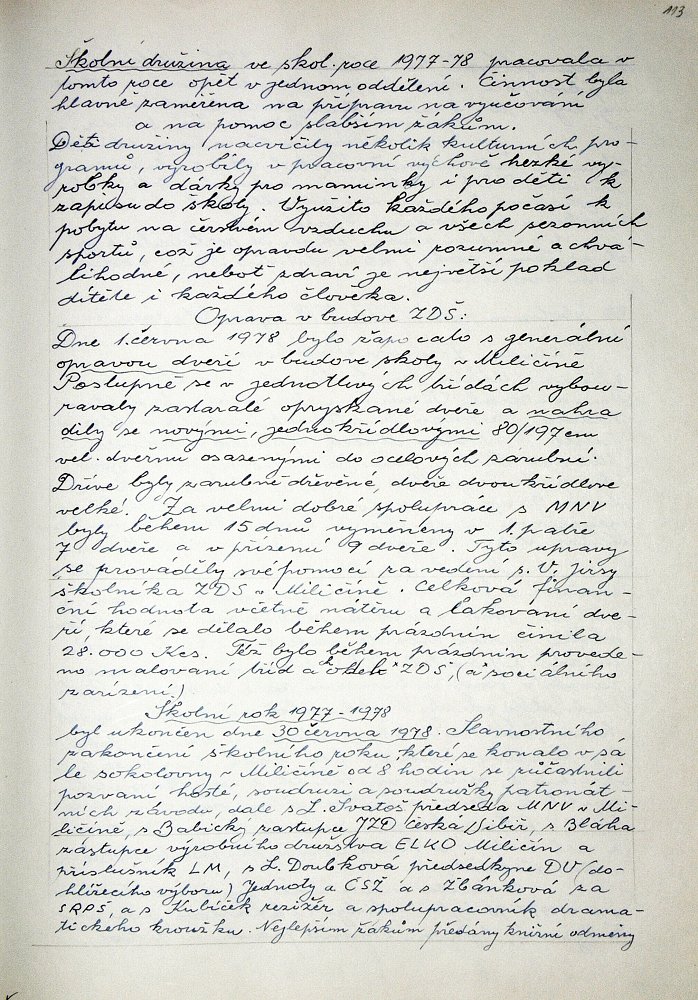 113
Školní družina ve škol. roce 1977-78 pracovala v
tomto roce opět v jednom oddělení. Činnost byla
hlavně zaměřena na přípravu na vyučování
a na pomoc slabším žákům.
Děti družiny nacvičily několik kulturních pro-
gramů, vyrobily v pracovní výchově hezké vý-
robky a dárky pro maminky i pro děti k
zápisu do školy. Využito každého počasí k
pobytu na čerstvém vzduchu a všech sezonních
sportů, což je opravdu velmi rozumné a chvá-
lihodné, neboť zdraví je největší poklad
dítěte i každého člověka.
Oprava v budově ZDŠ:
Dne 1. června 1978 bylo započato s generální
opravou dveří v budově školy v Miličíně
Postupně se v jednotlivých třídách vybou-
rávaly zastaralé oprýskané dveře a nahra
dily se novými, jednokřídlovými 80/197 cm
vel. dveřmi osazenými do ocelových zárubní.
Dříve byly zárubně dřevěné, dveře dvoukřídlové
velké. Za velmi dobré spolupráce s MNV
byly během 15 dnů vyměněny v 1. patře
7 dveře a v přízemí 9 dveře. Tyto úpravy
se prováděly svépomocí za vedení p. V. Jirsy
školníka ZDŠ v Miličíně. Celková finan-
ční hodnota včetně nátěru a lakování dve-
ří, které se dělalo během prázdnin činila
28.000 Kčs. Též bylo během prázdnin provede-
no malování tříd a chodeb ZDŠ, (a sociálního
zařízení.)
Školní rok 1977-1978
byl ukončen dne 30 června 1978. Slavnostního
zakončení školního roku, které se konalo v sá
le sokolovny v Miličíně od 8 hodin se zúčastnili
pozvaní hosté, soudruzi a soudružky patronát-
ních závodů, dále s L. Svatoš předseda MNV v Mi-
ličíně, s Babický zástupce JZD Česká Sibiř, s Bláha
zástupce výrobního družstva ELKO Miličín a
příslušník LM, s L. Doubková předsedkyně DV (do-
hlížecího výboru) Jednoty a ČSŽ a s Zbánková za
SRPŠ, a s Kubíček režizér a spolupracovník drama-
tického kroužku. Nejlepším žákům předány knižní odměny